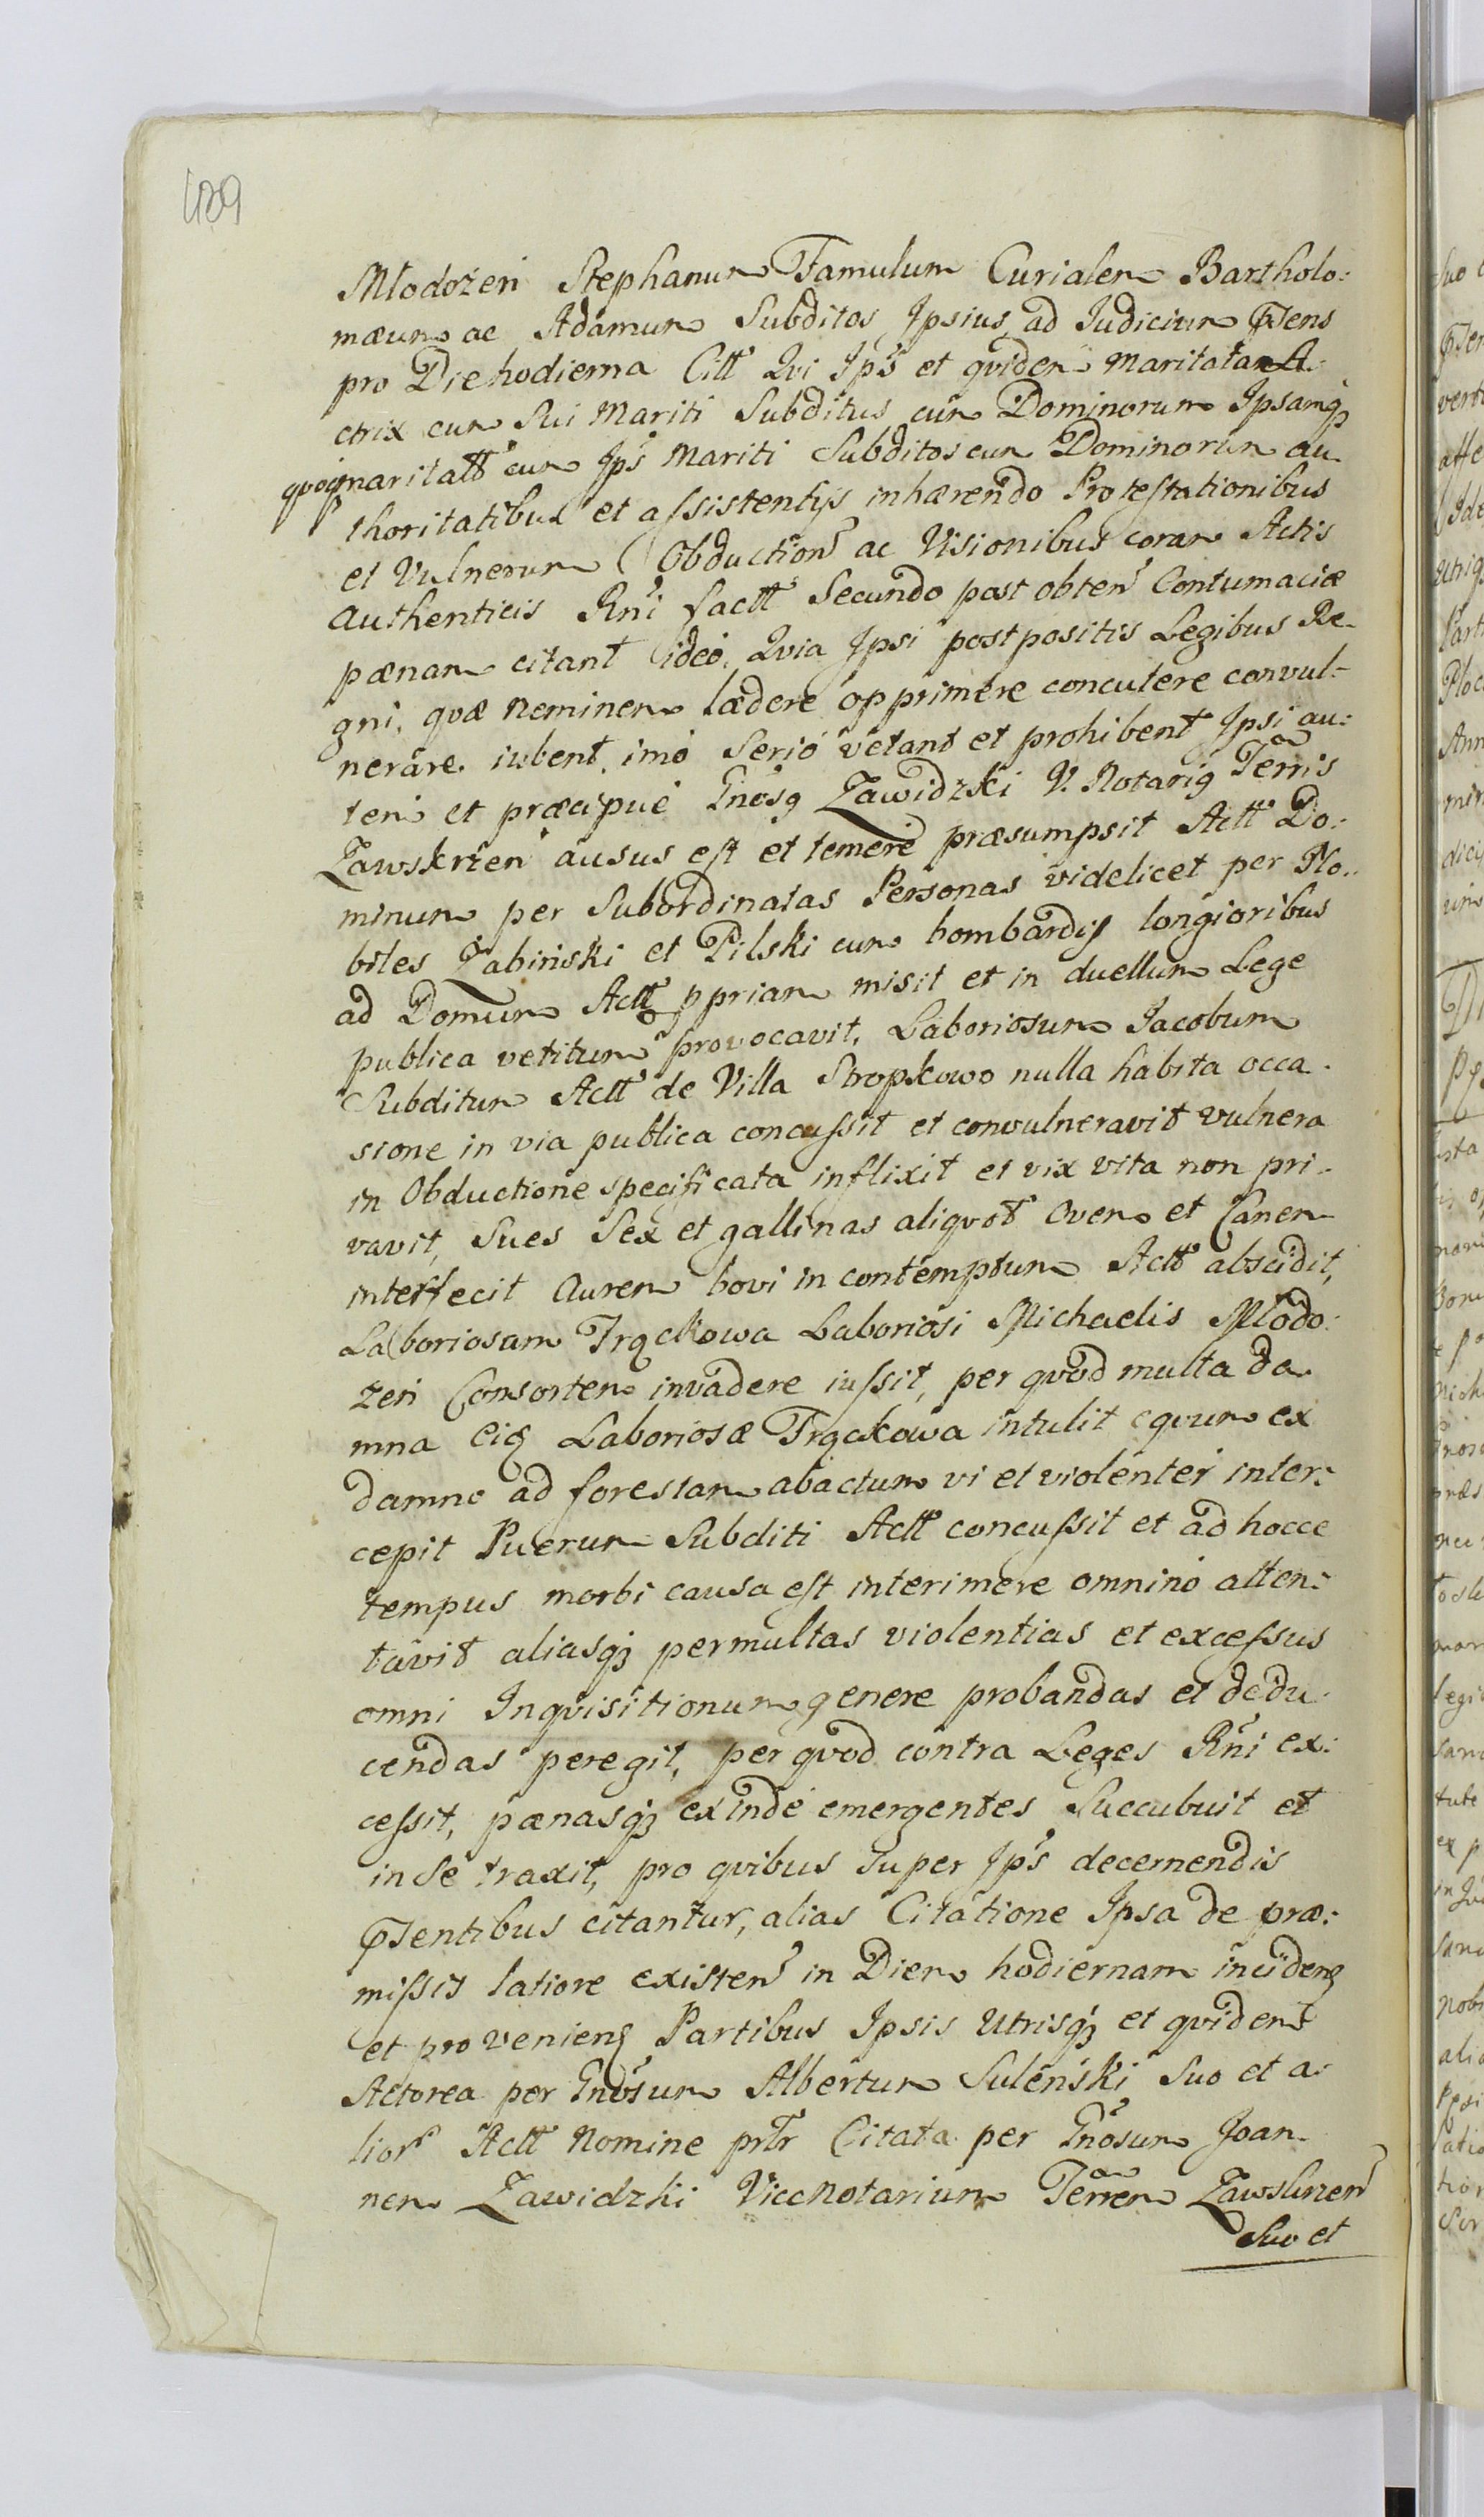 489
Młodożeń Stephanum Famulum Curialem Bartholo:
mæum ac Adamum Subditos Ipsius ad Judicium Pñens
pro Die hodierna Citt Qui Ips et qvidem maritata A:
ctrix cum Sui Mariti Subditus cum Dominorum Ipsamqȝ
qvoqȝ maritatt cum Ips Mariti Subditos cum Dominorum au
thoritatibus et assistentijs inhærendo Protestationibus
et Vulnerum Obduction ac Visionibus coram Actis
Authenticis Rni factt Secundo post obten Contumaciæ
pænam citant ideó, Qvia Ipsi postpositis Legibus Re-
gni, qvæ neminem lædere opprimere concutere convul-
nerare iubent, imó Serió vetant et prohibent Ipsi au:
tem et præcipué Gnosq Zawidzki V. Notariq Terris
Zawskrzen ausus est et temeré præsumpsit Actt Do:
minum per Subordinatas Personas videlicet per No:
biles Żabiński et Pilski cum bombardis longioribus
ad Domum Actt ppriam misit et in duellum Lege
publica vetitum provocavit, Laboriosum Jacobum
Subditum Actt de Villa Stropkowo nulla habita occa-
sione in via publica concussit et convulneravit vulnera
in Obductione specificata inflixit et vix vita non pri-
vavit, Sues Sex et gallinas aliqvot Ovem et Canem
interfecit Aurem bovi in contemptum Actt abscidit,
Laboriosam Trąckowa Laboriosi Michaelis Młodo:
żeń Consortem invadere iussit, per qvod multa da
mna Eiq Laboriosæ Trąckowa intulit eqvum ex
damno ad forestam abactum vi et violenter inter:
cepit Puerum Subditi Actt concussit et ad hocce
tempus morbi causa est interimere omninó atten:
tavit aliasqȝ permultas violentias et excessus
omni Inqvisitionum genere probandas et dedu-
cendas peregit, per qvod contra Leges Rni ex:
cessit, pænasqȝ exindé emergentes Succubuit et
in Se traxit, pro qvibus super Ips decernendis
Pñsentibus citantur, alias Citatione Ipsa de præ:
missis latiore existen in Diem hodiernam incidenq
et provenienq Partibus Ipsis Utrisqȝ et qvidem
Actorea per Gnosum Albertum Suleński Suo et a:
lior Actt Nomine prtr Citata per Gnosum Joan-
nem Zawidzki ViceNotarium Terren Zawskrzen
Suo et